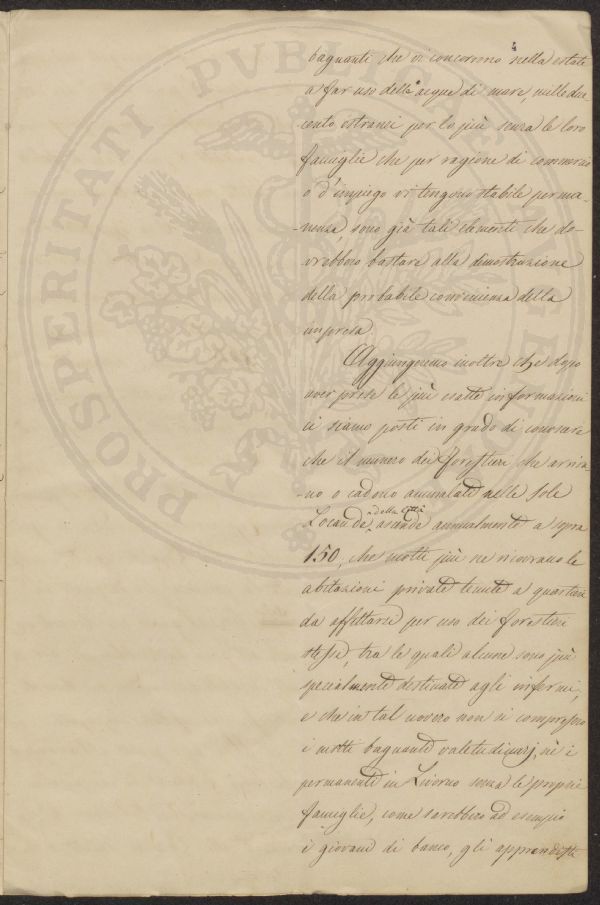 4
bagnanti che vi concorrono nella estate
a far uso delle acque di mare, mille due
cento estranei per lo più senza le loro
famiglie che per ragione di commercio
o d'impiego vi tengono stabile perma-
-nenza sono già tali elementi che do-
-vrebbero bastare alla dimostrazione
della probabile convenienza della
impresa
Aggiungeremo inoltre che dopo
aver prese le più esatte informazioni
ci siamo posti in grado di conoscere
che il numero dei forestieri che arriva-
-no o cadono ammalati nelle sole
della città
Locande ascende annualmente a sopra
150, che molti più ne ricovrano le
abitazioni private tenute a quartieri
da affittarsi per uso dei forestieri
stessi, tra le quali alcune sono più
specialmente destinate agli infermi,
e che in tal novero non si compresero
i molti bagnanti valetudinarj, nè i
permanenti in Livorno senza le proprie
famiglie, come sarebbero ad esempio
i giovani di banco, gli apprendisti
PROSPERITATI PVBLICAE